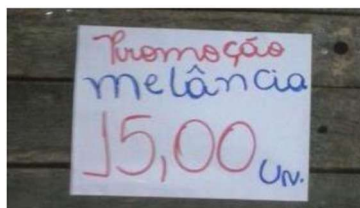 Promoção
melância
15,00 UN.